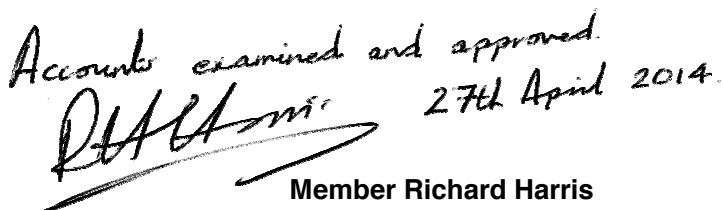 Accounts examined and approved.
27th April 2014.
Member Richard Harris